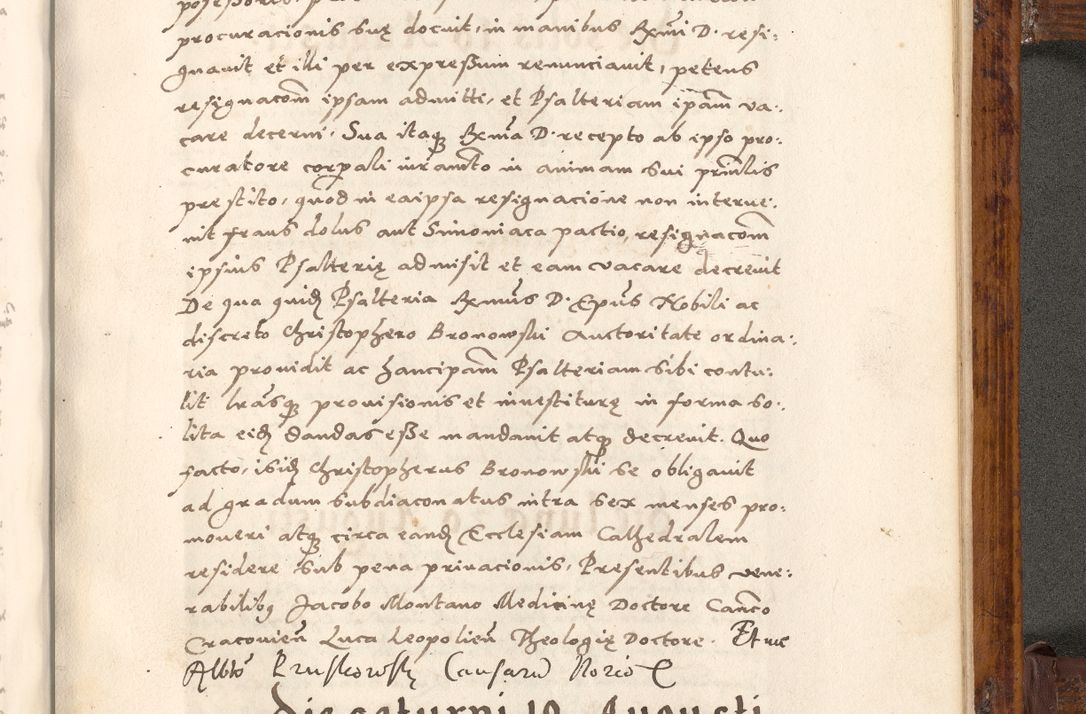 procuracionis suę docuit, in manibus Rxmi D. resi:
gnauit et illi per expressum renunciauit, petens
resignacom ipsam admitti, et Psalteriam ipam va:
care decerni. Sua itaq Rxma D. recepto ab ipso pro:
curatore corpali iuramto in animam sui prinlis
prestito, quod in eaipsa resignacione non interue:
nit fraus dolus aut Simoniaca pactio, resignacom
ipsius Psalterię admisit et eam vacare decreuit
De qua quidę Psalteria Rxmus D. Epus Nobili ac
discreto Christophero Bronowski Auctoritate ordina:
ria prouidit ac hancipam Psalteriam sibi contu:
lit lrasq prouisionis et inuestiturę in forma so:
lita eidę dandas esse mandauit atq decreuit. Quo
facto, isidę Christopherus Bronowski se obligauit
ad gradum subdiaconatus intra sex menses pro:
moueri atq circa eandę Ecclesiam Cathedralem
residere sub pena priuacionis, Presentibus vene:
rabilibq Jacobo Montano Medicinę Doctore Canco
Cracouien Luca Leopolien Theologię Doctore. Et me
Albto Pruskowski Causaru Norio
die saturni 10 Augusti